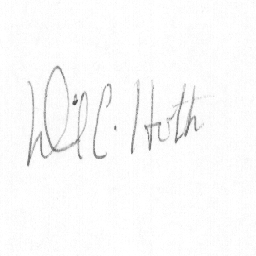 Wil C. Hoth